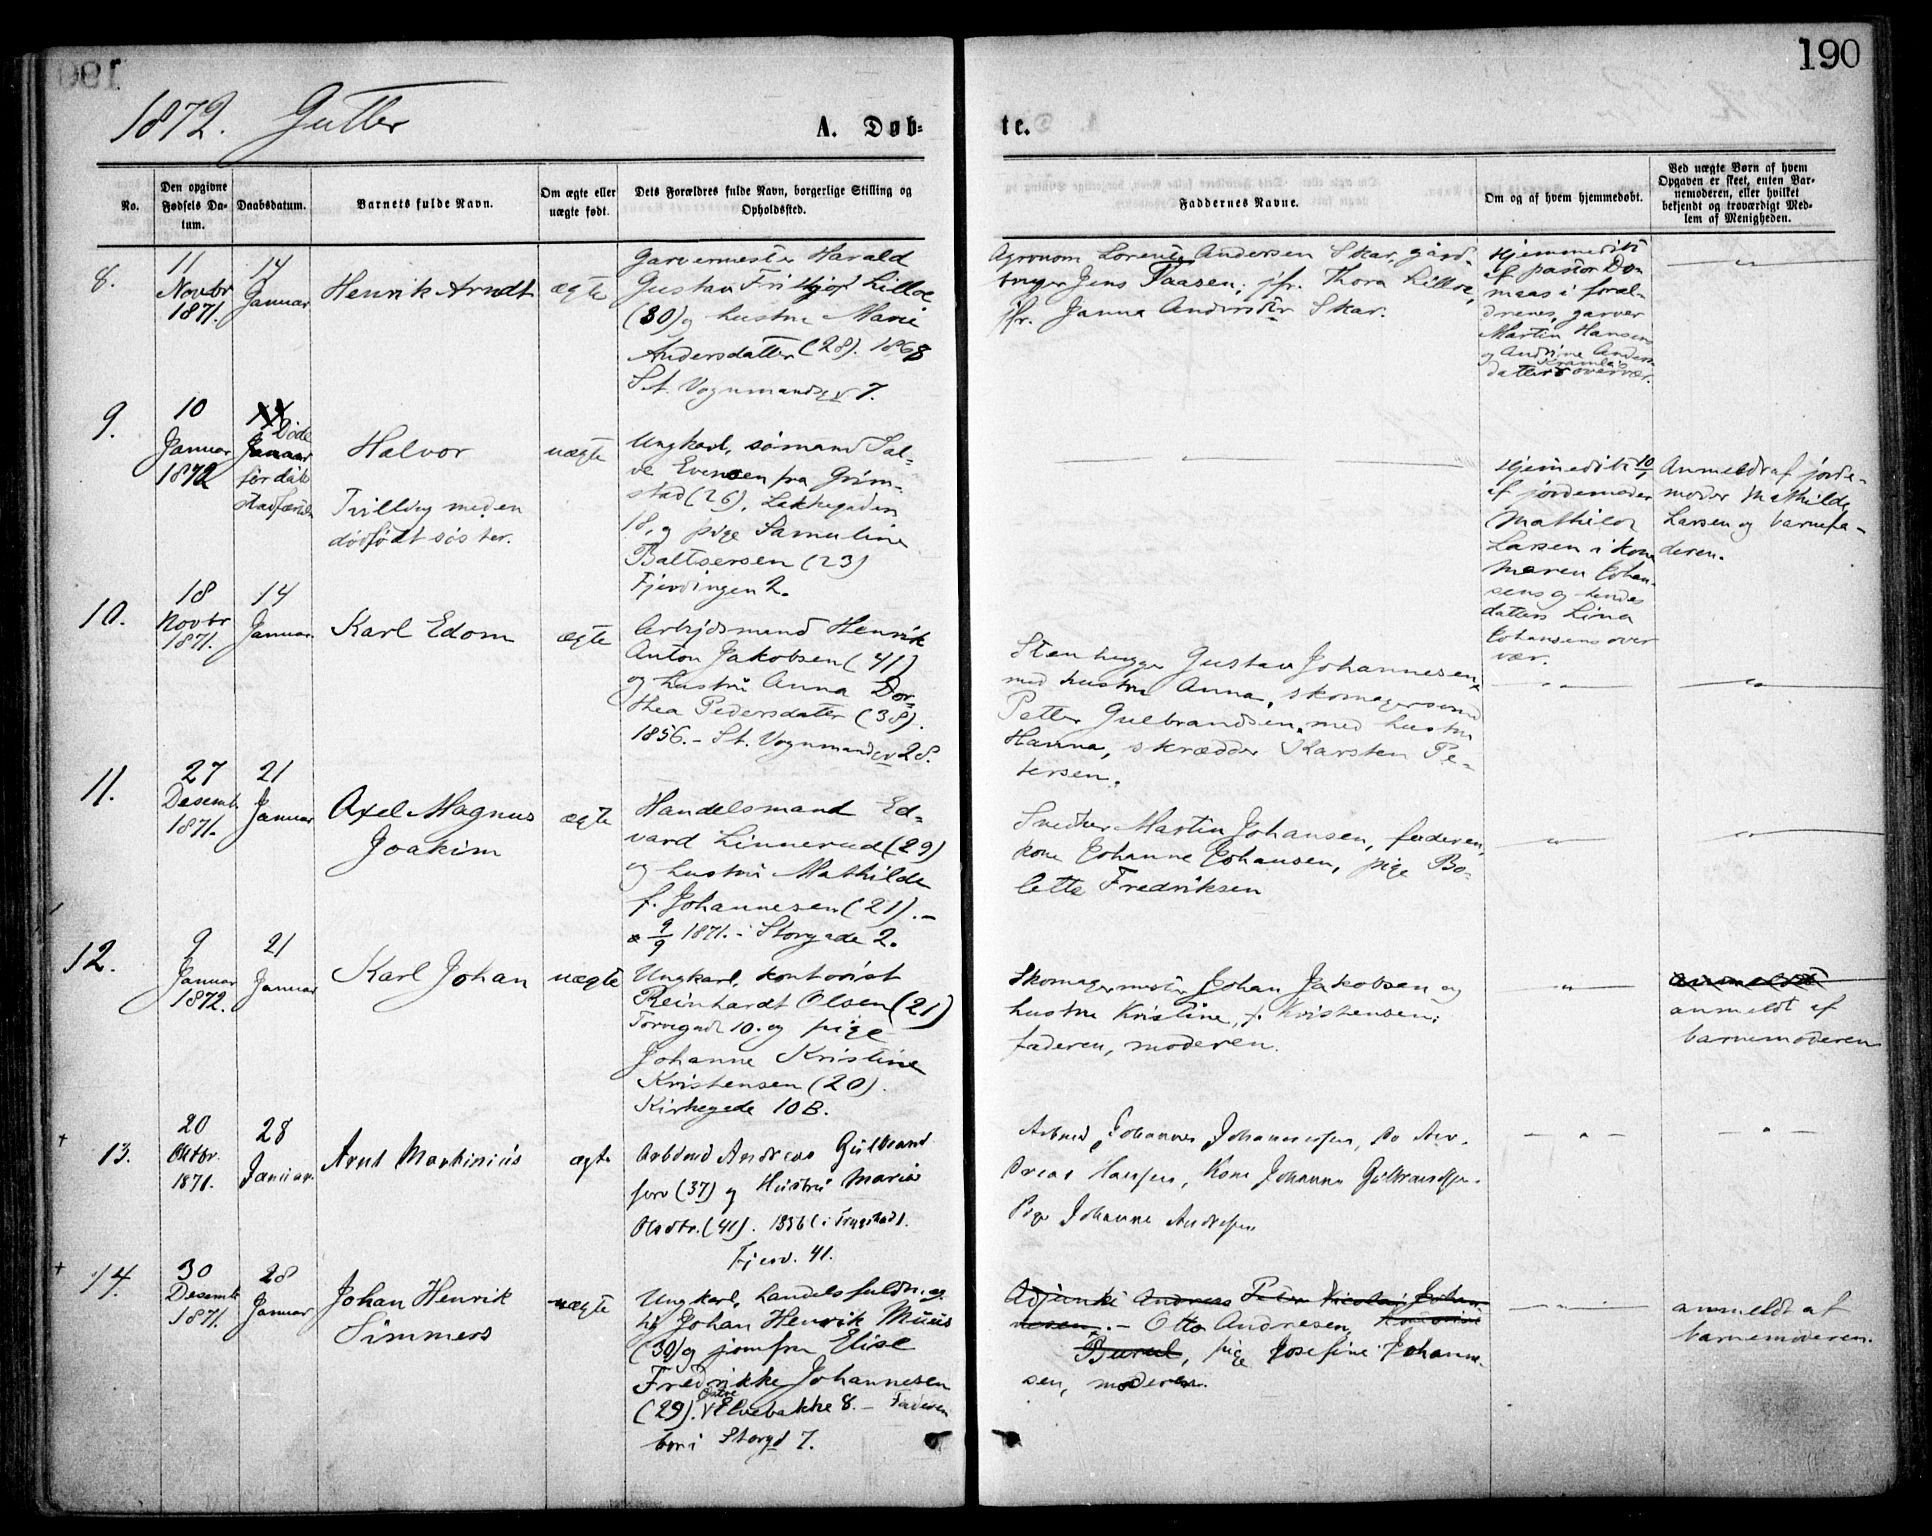 190
1872. Gutter
A. Døb-
te.
No.
Den opgivne
Fødsels Da-
tum.
Daabsdatum.
Barnets fulde Navn.
Om ægte eller
uægte født.
Dets Forældres fulde Navn, borgerlige Stilling og
Opholdssted.
Faddernes Navne.
Om og af hvem hjemmedøbt.
Ved uægte Børn af hvem
Opgaven er skeet, enten Bar-
nemoderen, eller hvilket
bekjendt og troværdigt Med-
lem af Menigheden.
8.
11
Novbr
1871.
14
Januar
Henrik Arndt
ægte
Garvermester Harald
Gustav Fritjof Lilloe
(30) og hustru Marie
Andersdatter (28). 1868
St. Vognmandsg. 7.
Agronom Lorents Andersen Skar, gård-
bruger Jens Taasen, jfr. Thora Lilloe,
jfr. Janna Andersdtr Skar.
Hjemmedøbt
af pastor Don
maas i foræl-
drenes, garver
Martin Hansens
og Andrine Anders
datters overvær.
9.
10
Januar
1872
14
Døde
Januar
før dåb
stadfæstelse
Halvor
Tvilling med en
dødfødt søster.
uægte
Ungkarl, sømand Sal-
ve Evensen fra Grim-
stad (26), Lakkegaden
18, og pige Samuline
Baltsersen (23)
Fjerdingen 2.
Hjemmedøbt 10/1
af jordemoder
Mathilde
Larsen i kone
Maren Johan-
sens og hendes
datters Lina
Johansens over
vær.
Anmeldt af jorde-
moder Mathilde
Larsen og barnefa-
deren.
10.
18
Novbr
1871.
14
Januar.
Karl Edom
ægte
Arbejdsmand Henrik
Anton Jakobsen (41)
og hustru Anna Dor-
thea Pedersdatter (38).
1856. - St. Vognmandsg. 28.
Stenhugger Gustav Johannesen
med hustru Anna, skomagersvend
Petter Gulbrandsen med hustru
Hanna, skrædder Karsten Pe-
tersen.
11.
27
Desemb
1871.
21
Januar
Axel Magnus
Joakim
ægte
Handelsmand Ed-
vard Linnerud (29)
og hustru Mathilde
f. Johannesen (21). -
9/9 1871. - Storgade 2.
Snedker Martin Johansen, faderen,
kone Johanne Johansen, pige Bo-
lette Fredriksen
12.
9
Januar
1872.
21
Januar
Karl Johan
uægte
Ungkarl, kontorist
Reinhardt Olsen (21)
Torvegad 10. og pige
Johanne Kristine
Kristensen (20).
Kirkegade 10 B.
Skomagermester Johan Jakobsen og
hustru Kristine, f. Kristensen,
faderen, moderen.
anmeldt
anmeldt af
barnemoderen
13.
20
Oktbr.
1871.
28
Januar.
Arnt Martinius
ægte
Arbdmd Andreas Gulbrand
sen (37) og Hustru Maria
Olsdtr. (41). 1856 (i Trygstad).
Fjerd. 41.
Arbmd Johannes Johannessen, Do An-
dreas Hansen, Kone Johanna Gulbrandsen.
Pige Johanne Andresen
14.
30
Desemb
1871.
28
Januar
Johan Henrik
Simmers
uægte
Ungkarl, handelsfuldm.æg-
tig Johan Henrik Müus
(30) og jomfru Elise
Fredrikke Johannesen
(29). Østre Elvebakke 8. - Faderen
bor i Storgd 7.
Adjunkt Andreas Peter Nicolai Johan
nesen. - Otto Andresen,
pige Josefine Johanne-
sen, moderen.
anmeldt af
barnemoderen.